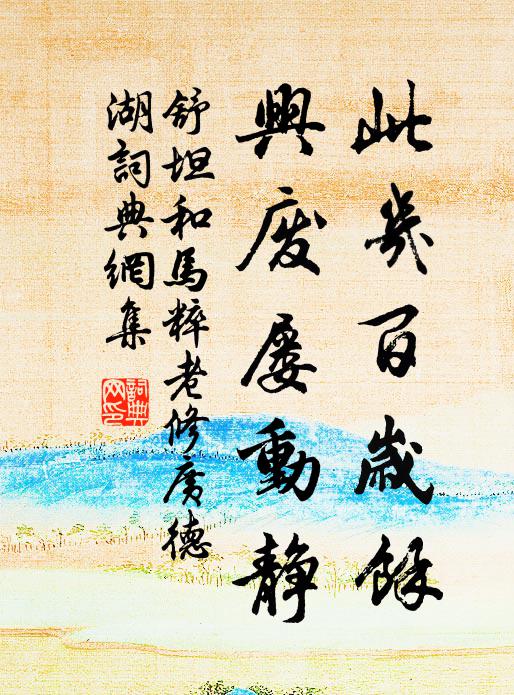 此幾百歲餘
興廢屡動靜
舒坦和馬粹老修廣德
湖詞典網集
詞典
网印